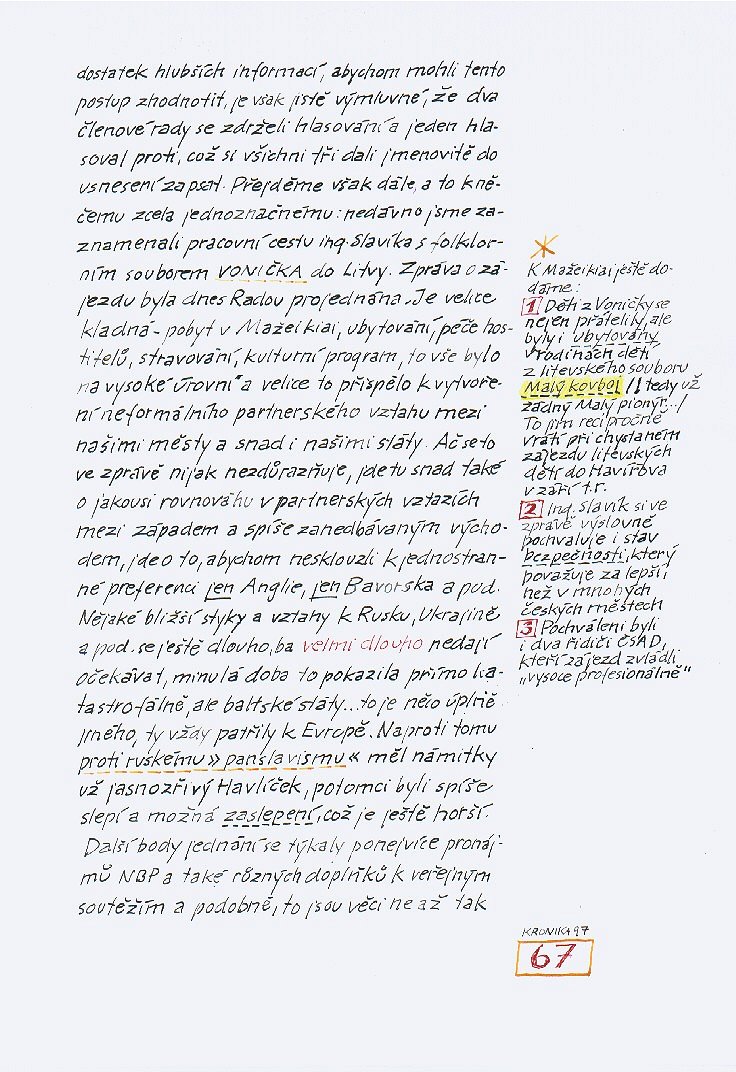 dostatek hlubších informací, abychom mohli tento
postup zhodnotit, je však jistě výmluvné, že dva
členové rady se zdrželi hlasování a jeden hla-
soval proti, což si všichni tři dali jmenovitě do
usnesení zapsat. Přejděme však dále, a to k ně-
čemu zcela jednoznačnému: nedávno jsme za-
znamenali pracovní cestu ing. Slavíka s folklor-
ním souborem VONIČKA do Litvy. Zpráva o zá-
jezdu byla dnes Radou projednána. Je velice
kladná - pobyt v Mažeikiai, ubytování, péče hos-
titelů, stravování, kulturní program, to vše bylo
na vysoké úrovni a velice to přispělo k vytvoře-
ní neformálního partnerského vztahu mezi
našimi městy a snad i našimi státy. Ač se to
ve zprávě nijak nezdůrazňuje, jde tu snad také
o jakousi rovnováhu v partnerských vztazích
mezi západem a spíše zanedbávaným výcho-
dem, jde o to, abychom nesklouzli k jednostran-
né preferenci jen Anglie, jen Bavorska a pod.
Nějaké bližší styky a vztahy k Rusku, Ukrajině
a pod. se ještě dlouho, ba velmi dlouho nedají
očekávat, minulá doba to pokazila přímo ka-
tastrofálně, ale baltské státy... to je něco úplně
jiného, ty vždy patřily k Evropě. Naproti tomu
proti ruskému »panslavismu« měl námitky
už jasnozřivý Havlíček, potomci byli spíše
slepí a možná zaslepení, což je ještě horší.
Další body jednání se týkaly ponejvíce pronáj-
mů NBP a také různých doplňků k veřejným
soutěžím a podobně, to jsou věci ne až tak
*
K Mažeikiai ještě do-
dáme:
1 Děti z Voničky se
nejen přátelily, ale
byly i ubytovány
v rodinách dětí
z litevského souboru
Malý kovboj /! tedy už
žádný Malý pionýr.../
To jim recipročně
vrátí při chystaném
zájezdu litevských
dětí do Havířova
v září t.r.
2 Ing. Slavík si ve
zprávě výslovně
pochvaluje i stav
bezpečnosti, který
považuje za lepší
než v mnohých
českých městech
3 Pochváleni byli
i dva řidiči ČSAD,
kteří zájezd zvládli
„vysoce profesionálně“
KRONIKA 97
67